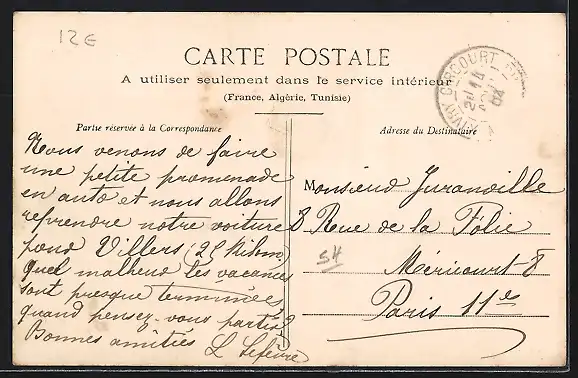 12€
CARTE POSTALE
A utiliser seulement dans le service intérieur
(France, Algérie, Tunisie)
Partie réservée à la Correspondance
Nous venons de faire
une petite promenade
en auto et nous allons
reprendre notre voiture
pour Villers (25 Kilom)
Quel malheur les vacances
sont presque terminées
quand pensez-vous partir?
Bonnes amitiés
L Lefèvre
Adresse du Destinataire
Monsieur Juranville
8 Rue de la Folie
Méricourt 8
Paris 11e
54